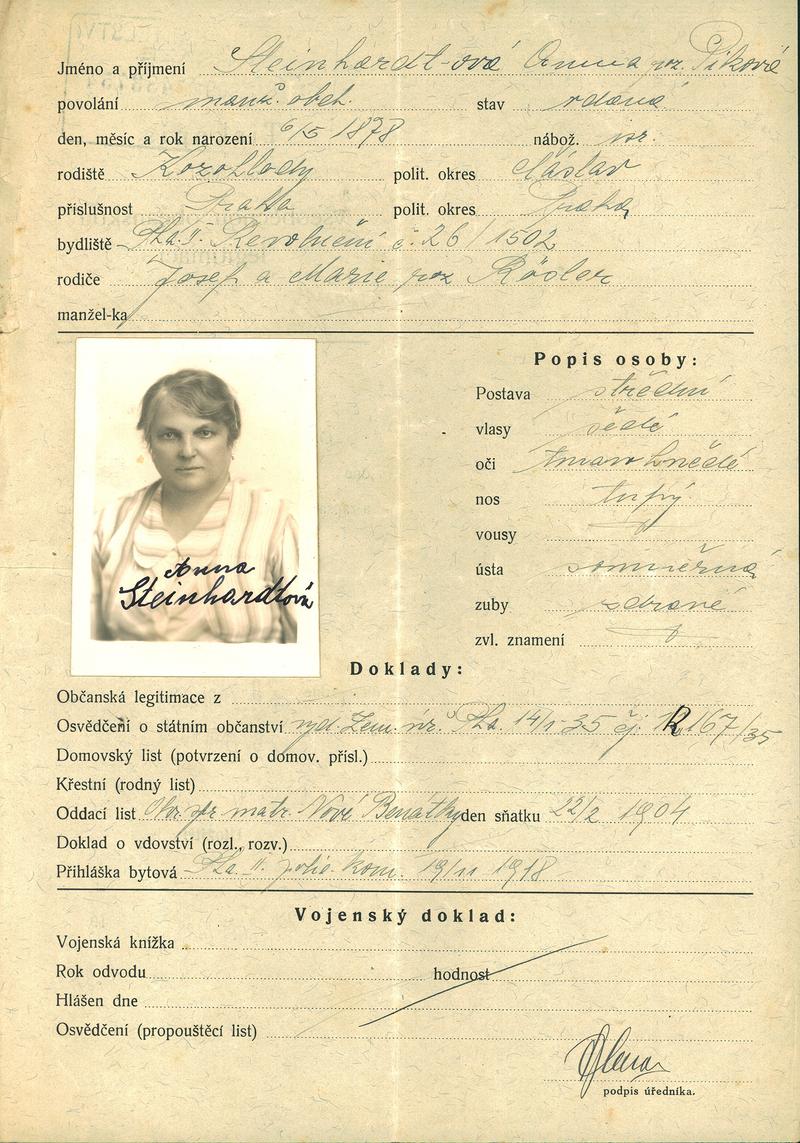 Jméno a příjmení Steinhardt-ová Anna roz. Piková
povolání manž. obch. stav vdaná
den, měsíc a rok narození 6/5 1878 nábož. isr.
rodiště polit. okres Čáslav
příslušnost Praha polit. okres Praha
bydliště Pha. II. Revoluční č. 26/1502
rodiče Josef a Marie roz Rösler
manžel-ka
Popis osoby:
Postava střední
vlasy šedé
oči tmavohnědé
nos tupý
vousy
ústa souměrná
zuby zdravé
zvl. znamení
Anna
Steinhardtová
Doklady:
Občanská legitimace z
Osvědčení o státním občanství vyd. Zem. úř. Pha. 14/1-35 čj. R 167/35
Domovský list (potvrzení o domov. přísl.)
Křestní (rodný list)
Oddací list matr. Nové Benátky den sňatku 22/2 1904
Doklad o vdovství (rozl., rozv.)
Přihláška bytová Pha. II. polic. kom. 19/11 1918
Vojenský doklad:
Vojenská knížka
Rok odvodu hodnost
Hlášen dne
Osvědčení (propouštěcí list)
podpis úředníka.